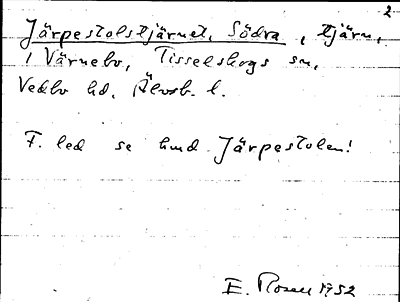 2
Järpestolstjärnet, Södra, tjärn,
i Värnebo, Tisselskogs sn,
Vedbo hd, Älvsb. l.
F. led se und. Järpestolen!
E. Rosell 1952